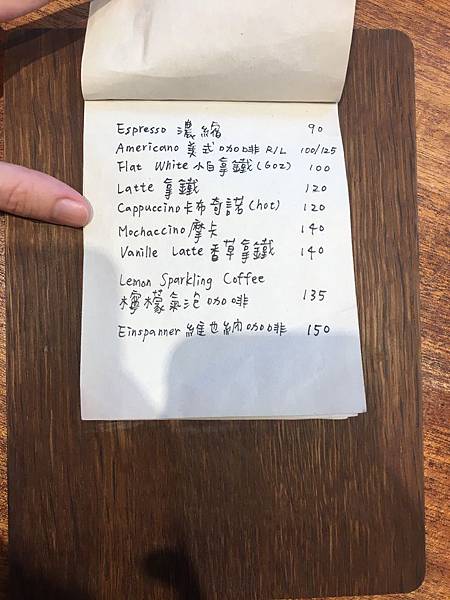 Espresso 濃縮 90
Americano 美式咖啡 R/L 100/125
Flat White 小白拿鐵(6oz) 100
Latte 拿鐵 120
Cappuccino卡布奇諾(hot) 120
Mochaccino摩卡 140
Vanille Latte香草拿鐵 140
Lemon Sparkling Coffee
檸檬氣泡咖啡 135
Einspanner維也納咖啡 150